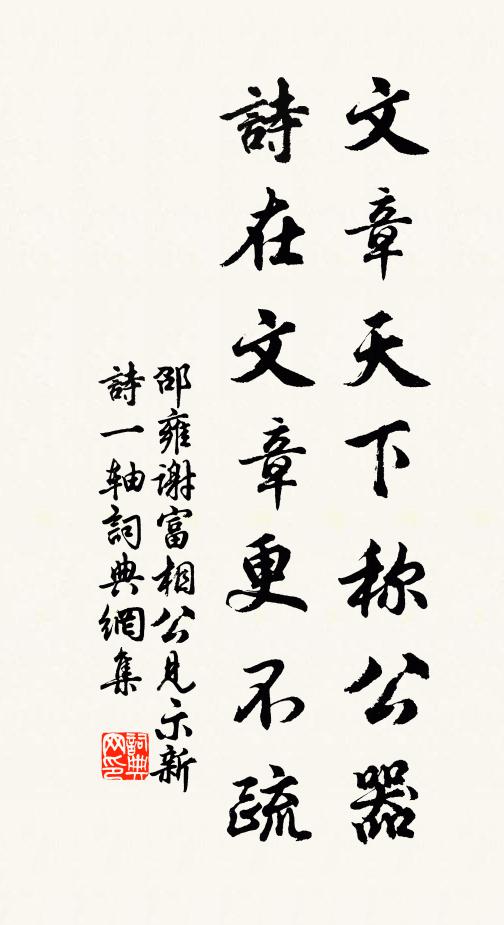 文章天下称公器
詩在文章更不疏
邵雍谢富相公見示新
詩一轴詞典網集
詞典网印